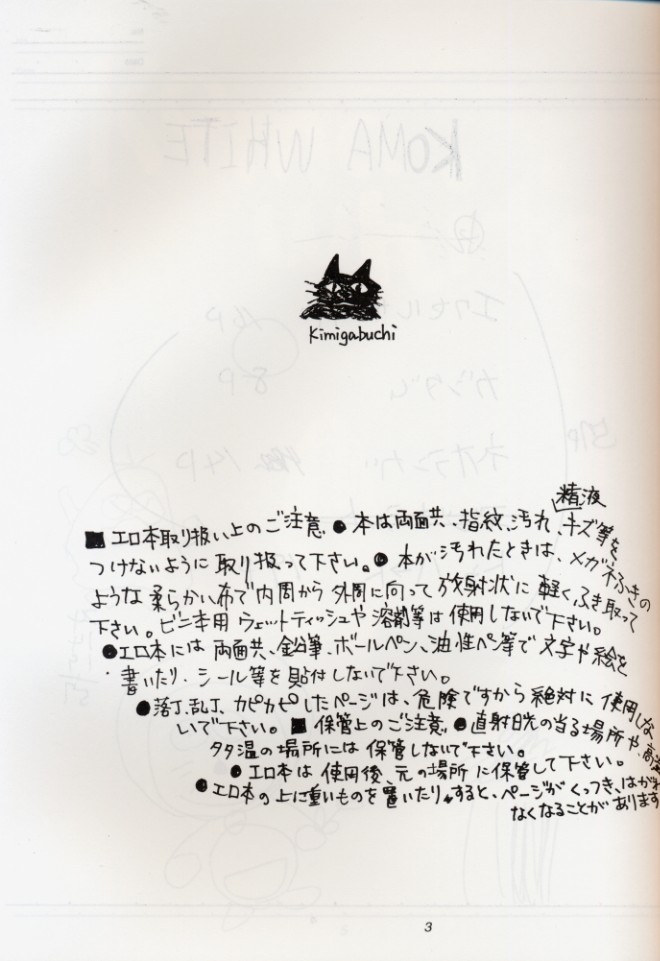 Kimigabuchi
精液
■ エロ本取り扱い上のご注意 ● 本は両面共、指紋、汚れ、キズ等を
つけないように取り扱って下さい。● 本が汚れたときは、メガネふきの
ような柔らかい布で内周から外周に向って放射状に軽くふき取って
下さい。ビニ本用ウェットティッシュや溶剤等は使用しないで下さい。
●エロ本には両面共、鉛筆、ボールペン、油性ペン等で文字や絵を
書いたり、シール等を貼付しないで下さい。
●落丁、乱丁、カピカピしたページは、危険ですから絶対に使用しな
いで下さい。■ 保管上のご注意 ●直射日光の当る場所や、高温
多湿の場所には保管しないで下さい。
●エロ本は使用後、元の場所に保管して下さい。
●エロ本の上に重いものを置いたりすると、ページがくっつき、はがれ
なくなることがあります
3
KOMA WHITE
16P
8P
14P